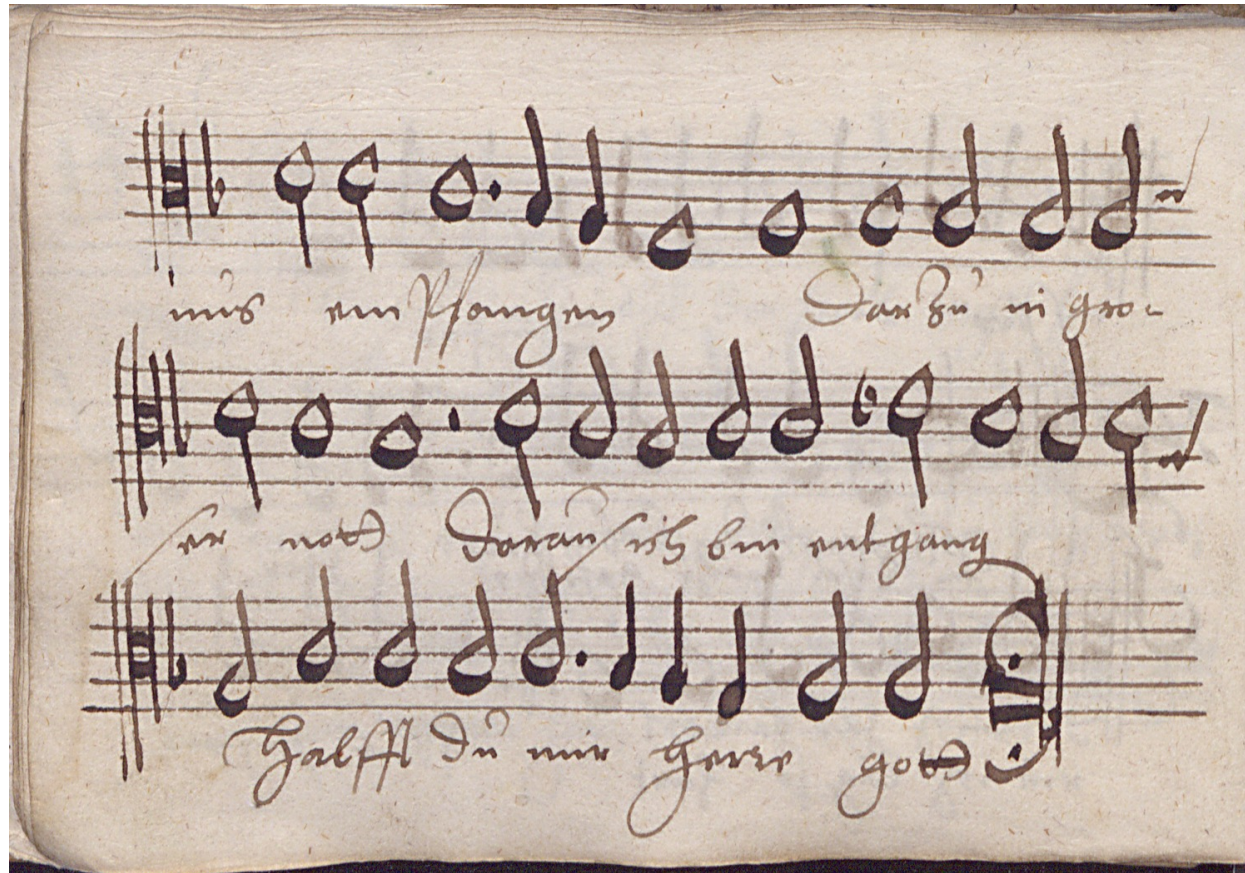 nus ein Pfangen Dar zu in gro-
ser nott Dorauß ich bin entgang
Halfft du mir Herre gott